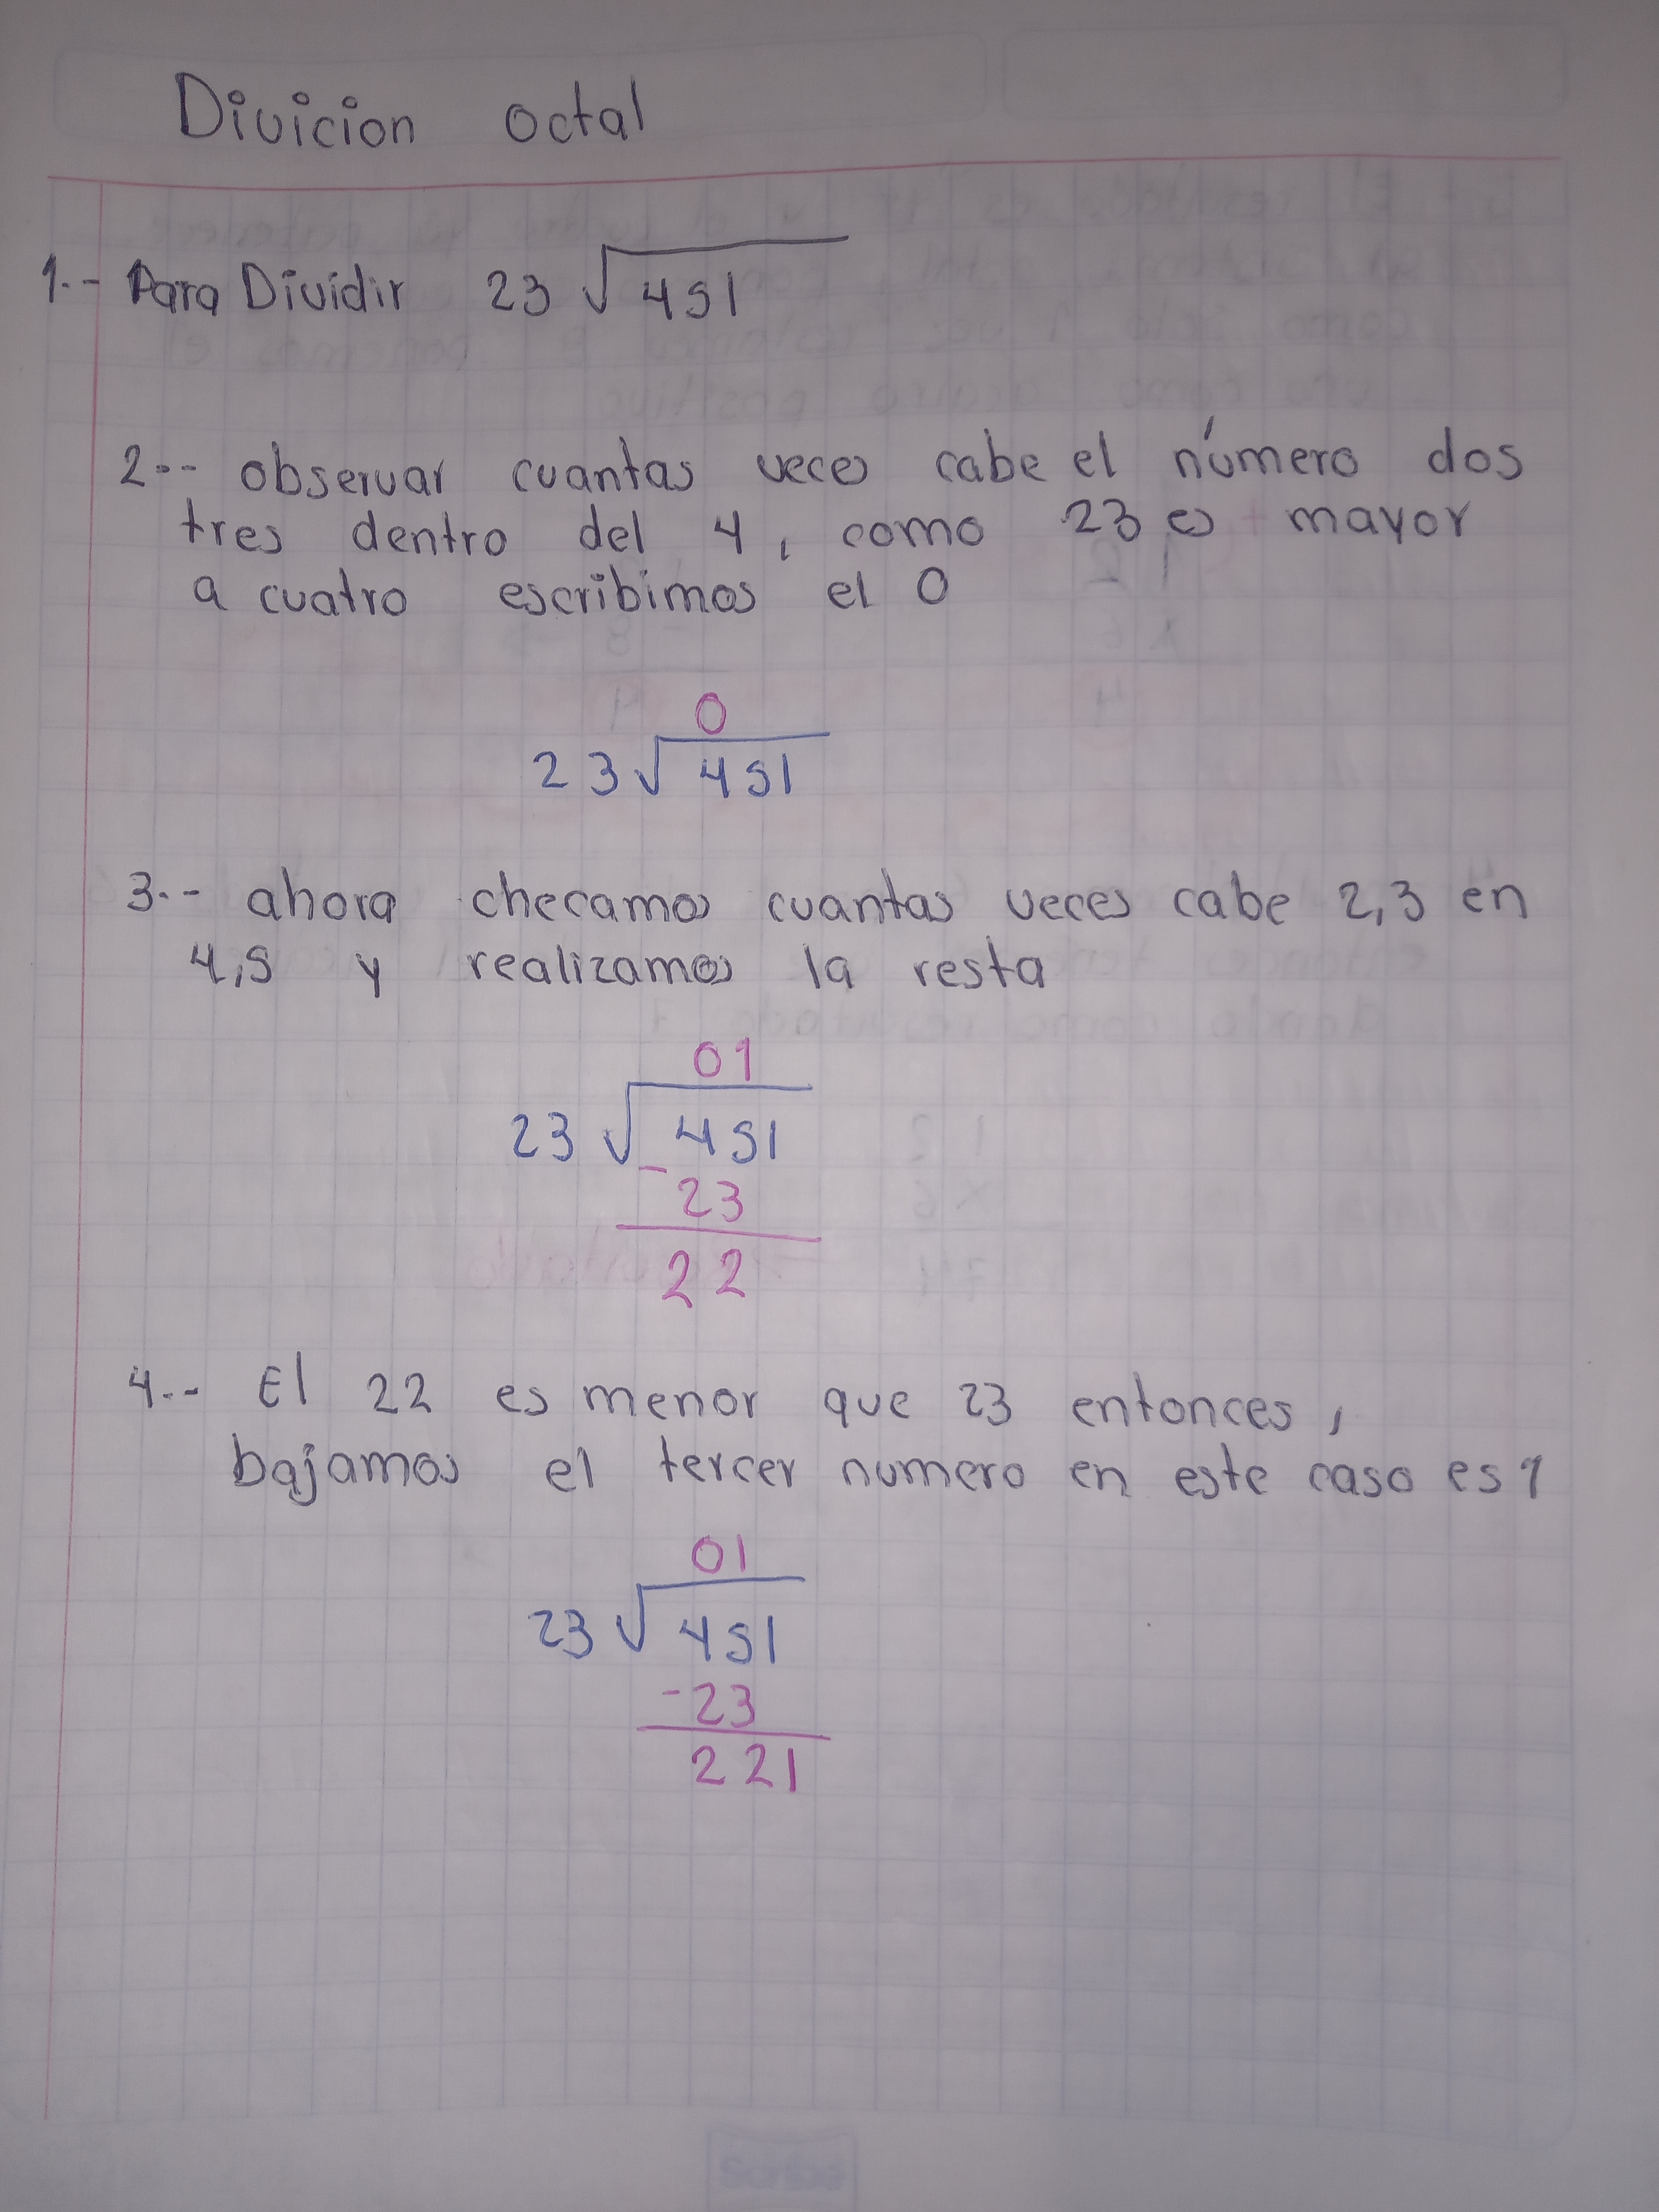 Divicion octal
1.- Para Dividir 23 √451
2.- observar cuantas veces cabe el número dos
tres dentro del 4, como 23 es mayor
a cuatro escribimos el 0
0
23 √451
3.- ahora checamos cuantas veces cabe 2,3 en
4,5 y realizamos la resta
01
23 √451
- 23
22
4.- El 22 es menor que 23 entonces,
bajamos el tercer numero en este caso es 1
01
23 √451
-23
221
Scribe